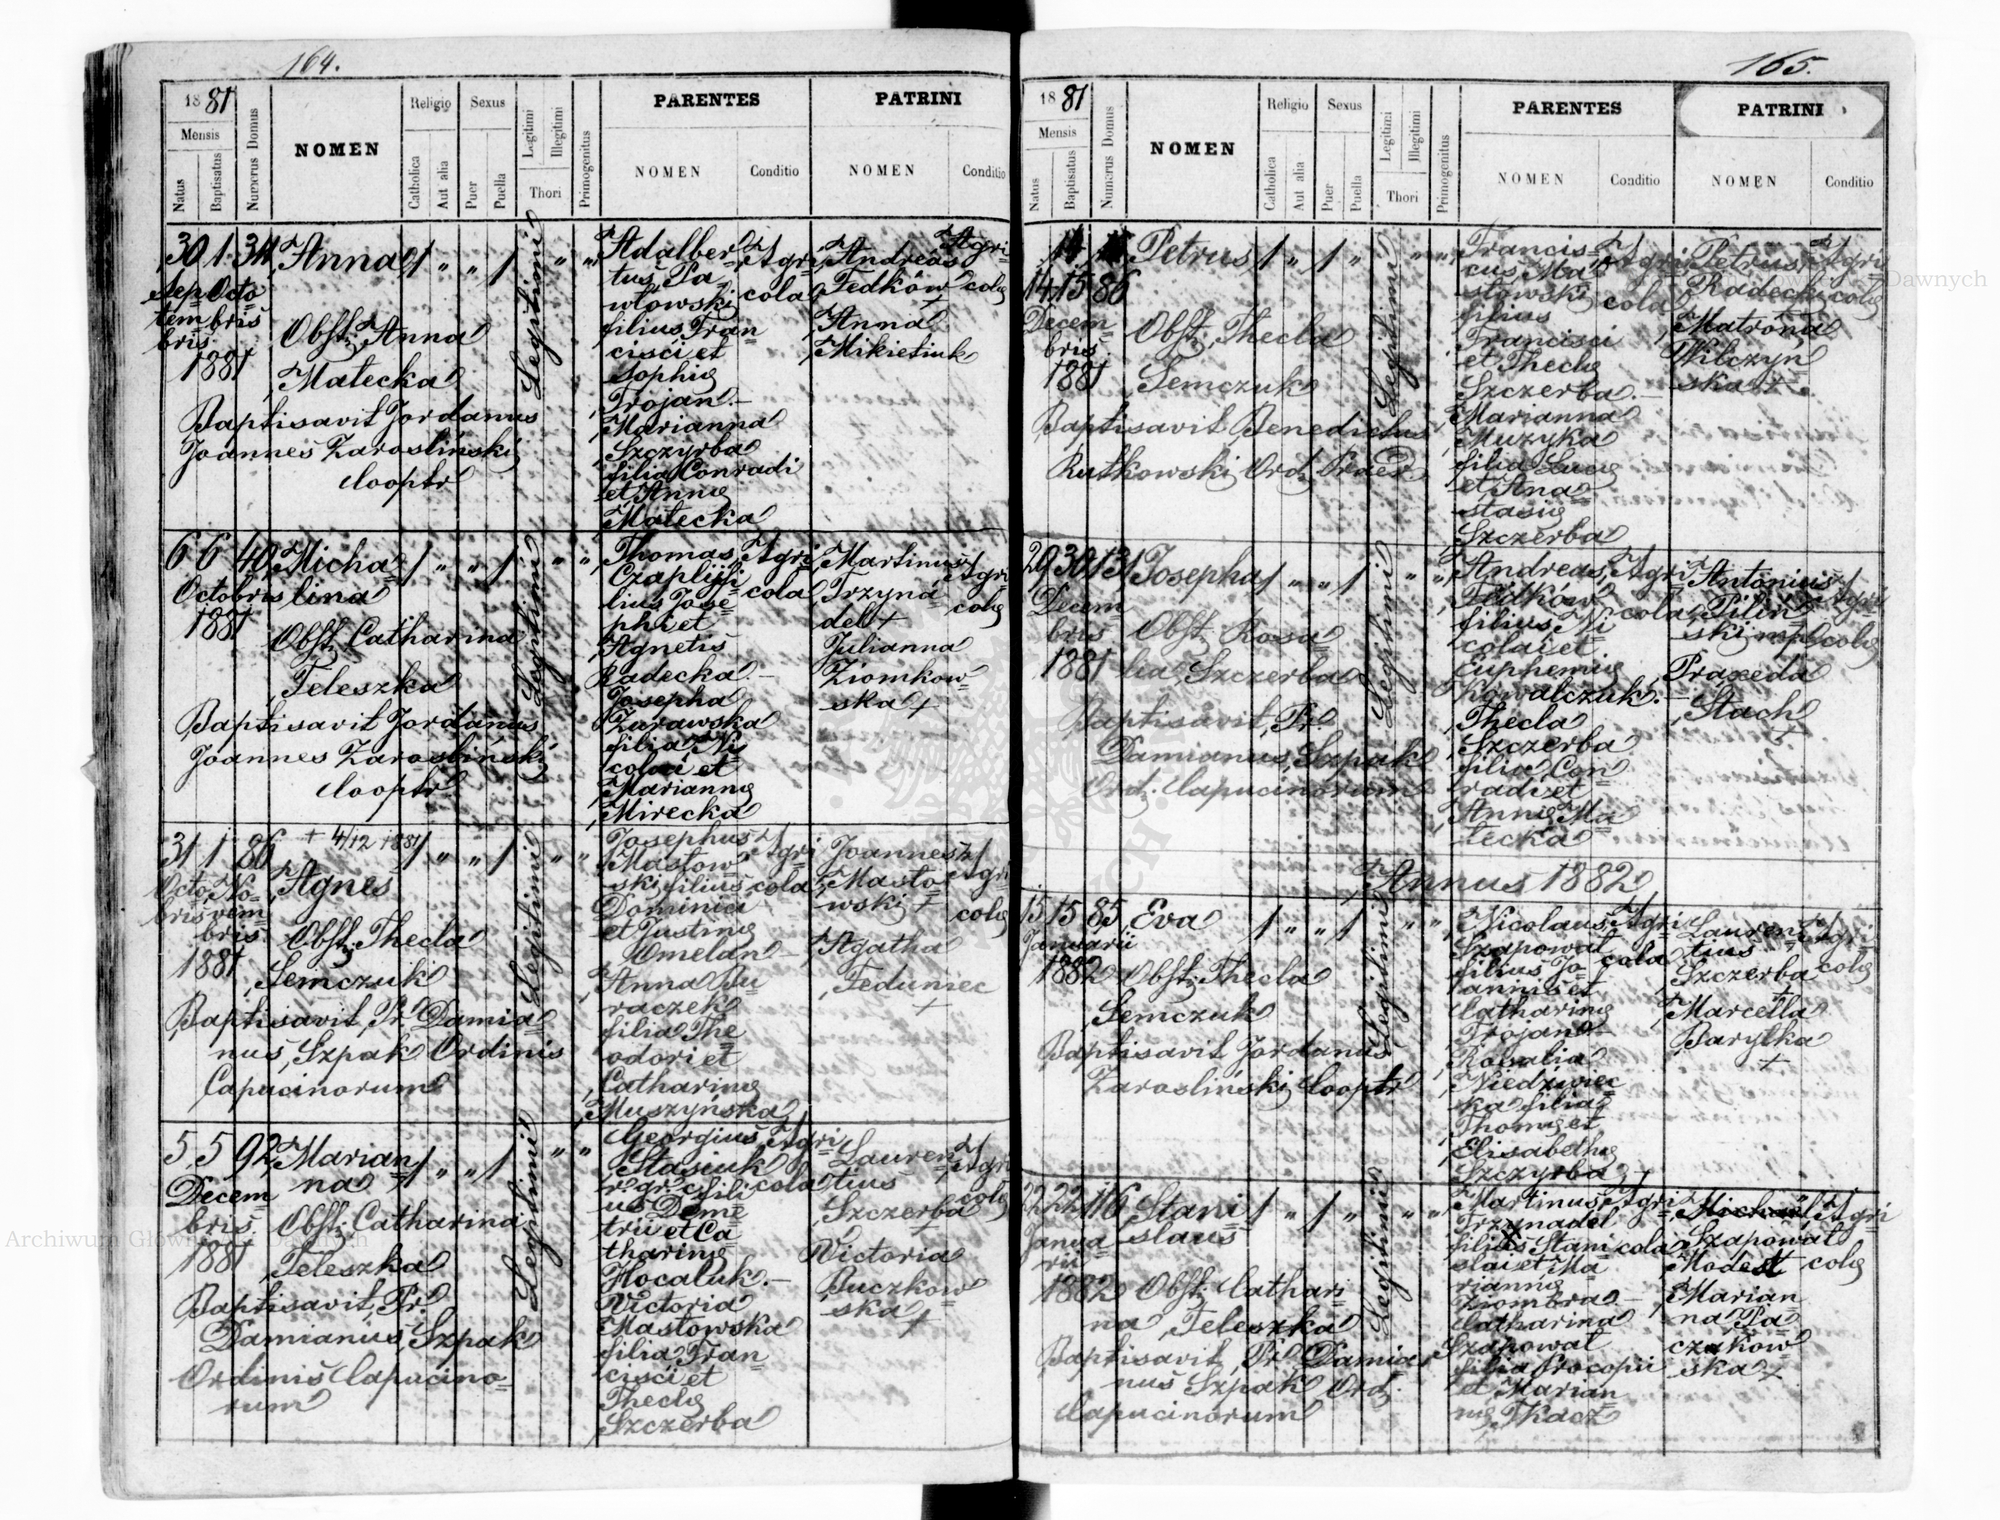 164.
18 81
Mensis
Natus
Baptisatus
Numerus Domus
NOMEN
Religio
Catholica
Aut alia
Sexus
Puer
Puella
Legitimi
Illegitimi
Thori
Primogenitus
PARENTES
NOMEN
Conditio
PATRINI
NOMEN
Conditio
30 1. 34 Anna
Sep Octo
tem bris
bris
1881
Obst. Anna
Małecka
Baptisavit Jordanus
Joannes Zarosliński
Cooptr
Legitimi
Adalber
tus Pa
włowski
filius Fran
cisci et
Sophię
Trojan.—
Marianna
Szczyrba
filia Conradi
et Annę
Małecka
Agri
cola
Andreas
Fedków
+
Anna
Mikietiuk
Agri
colę
6 6 40 Micha
lina
Octobris
1881
Obst. Catharina
Teleszka
Baptisavit Jordanus
Joannes Zarosliński
Cooptr
Legitimi
Thomas
Czaplij fi
lius Jose
phi et
Agnetis
Radecka.—
Josepha
Żurawska
filia Ni
colai et
Mariannę
Mirecka
Agri
cola
Martinus
Trzyna
del +
Julianna
Ziomkow
ska +
Agri
colę
31 1 86 + 4/12 1881
Agnes
Octo No
bris vem
bris
1881
Obst. Thecla
Semczuk
Baptisavit Pr. Damia
nus Szpak Ordinis
Capucinorum
Legitimi
Josephus
Masłow
ski filius
Dominici
et Justinę
Omelan —
Anna Bu
raczek
filia The
odori et
Catharinę
Muszyńska
Agri
cola
Joannes
Masło
wski +
Agatha
Feduniec
+
Agri
colę
5 5 92 Marian
na
Decem
bris
1881
Obst. Catharina
Teleszka
Baptisavit Pr.
Damianus Szpak
Ordinis Capucino
rum
Legitimi
Georgius
Stasiuk
r. gr. c. fili
us Deme
trii et Ca
tharinę
Hocaluk.—
Victoria
Masłowska
filia Fran
cisci et
Theclę
Szczerba
Agri
cola
Lauren
tius
Szczerba
+
Victoria
Buczkow
ska +
Agri
colę
165.
18 81
Mensis
Natus
Baptisatus
Numerus Domus
NOMEN
Religio
Catholica
Aut alia
Sexus
Puer
Puella
Legitimi
Illegitimi
Thori
Primogenitus
PARENTES
NOMEN
Conditio
PATRINI
NOMEN
Conditio
Petrus
14 15 86
Decem
bris
1881
Obst. Thecla
Semczuk
Baptisavit Benedictus
Rutkowski Ord. Praed.
Legitimi
Francis
cus Ma
słowski
filius
Francisci
et Theclę
Szczerba.—
Marianna
Muzyka
filia Lucę
et Ana
stasię
Szczerba
Agri
cola
Petrus
Radecki
Matrona
Wilczyń
ska +
Agri
colę
29 30 131 Josepha
Decem
bris
1881
Obst. Rosa
lia Szczerba
Baptisavit Pr.
Damianus Szpak
Ord. Capucinorum
Legitimi
Andreas
Fedków
filius Ni
colai et
Euphemię
Kowalczuk.—
Thecla
Szczerba
filia Con
radi et
Annę Ma
łecka
Agri
cola
Antonius
Piliń
ski mpl
Praxeda
Stach
+
Agri
colę
Annus 1882
15 15 85 Eva
Januarii
1882
Obst. Thecla
Semczuk
Baptisavit Jordanus
Zarosliński Cooptr
Legitimi
Nicolaus
Szapował
filius Jo
annis et
Catharinę
Trojan —
Rosalia
Niedźwiec
ka filia
Thomę et
Elisabethę
Szczyrba
Agri
cola
Lauren
tius
Szczerba
+
Marcella
Baryłka
+
Agri
colę
22 22 116 Stani
slaus
Janua
rii
1882
Obst. Cathari
na Teleszka
Baptisavit Pr. Damia
nus Szpak Ord.
Capucinorum
Legitimi
Martinus
Trzynadel
filius Stani
slai et Ma
riannę
Ziombra —
Catharina
Szapował
filia Procopii
et Marian
nę Tkacz
Agri
cola
Michael
Szapował
Modest
Marian
na Pa
czkow
ska +
Agri
colę
Archiwum Główne Akt Dawnych